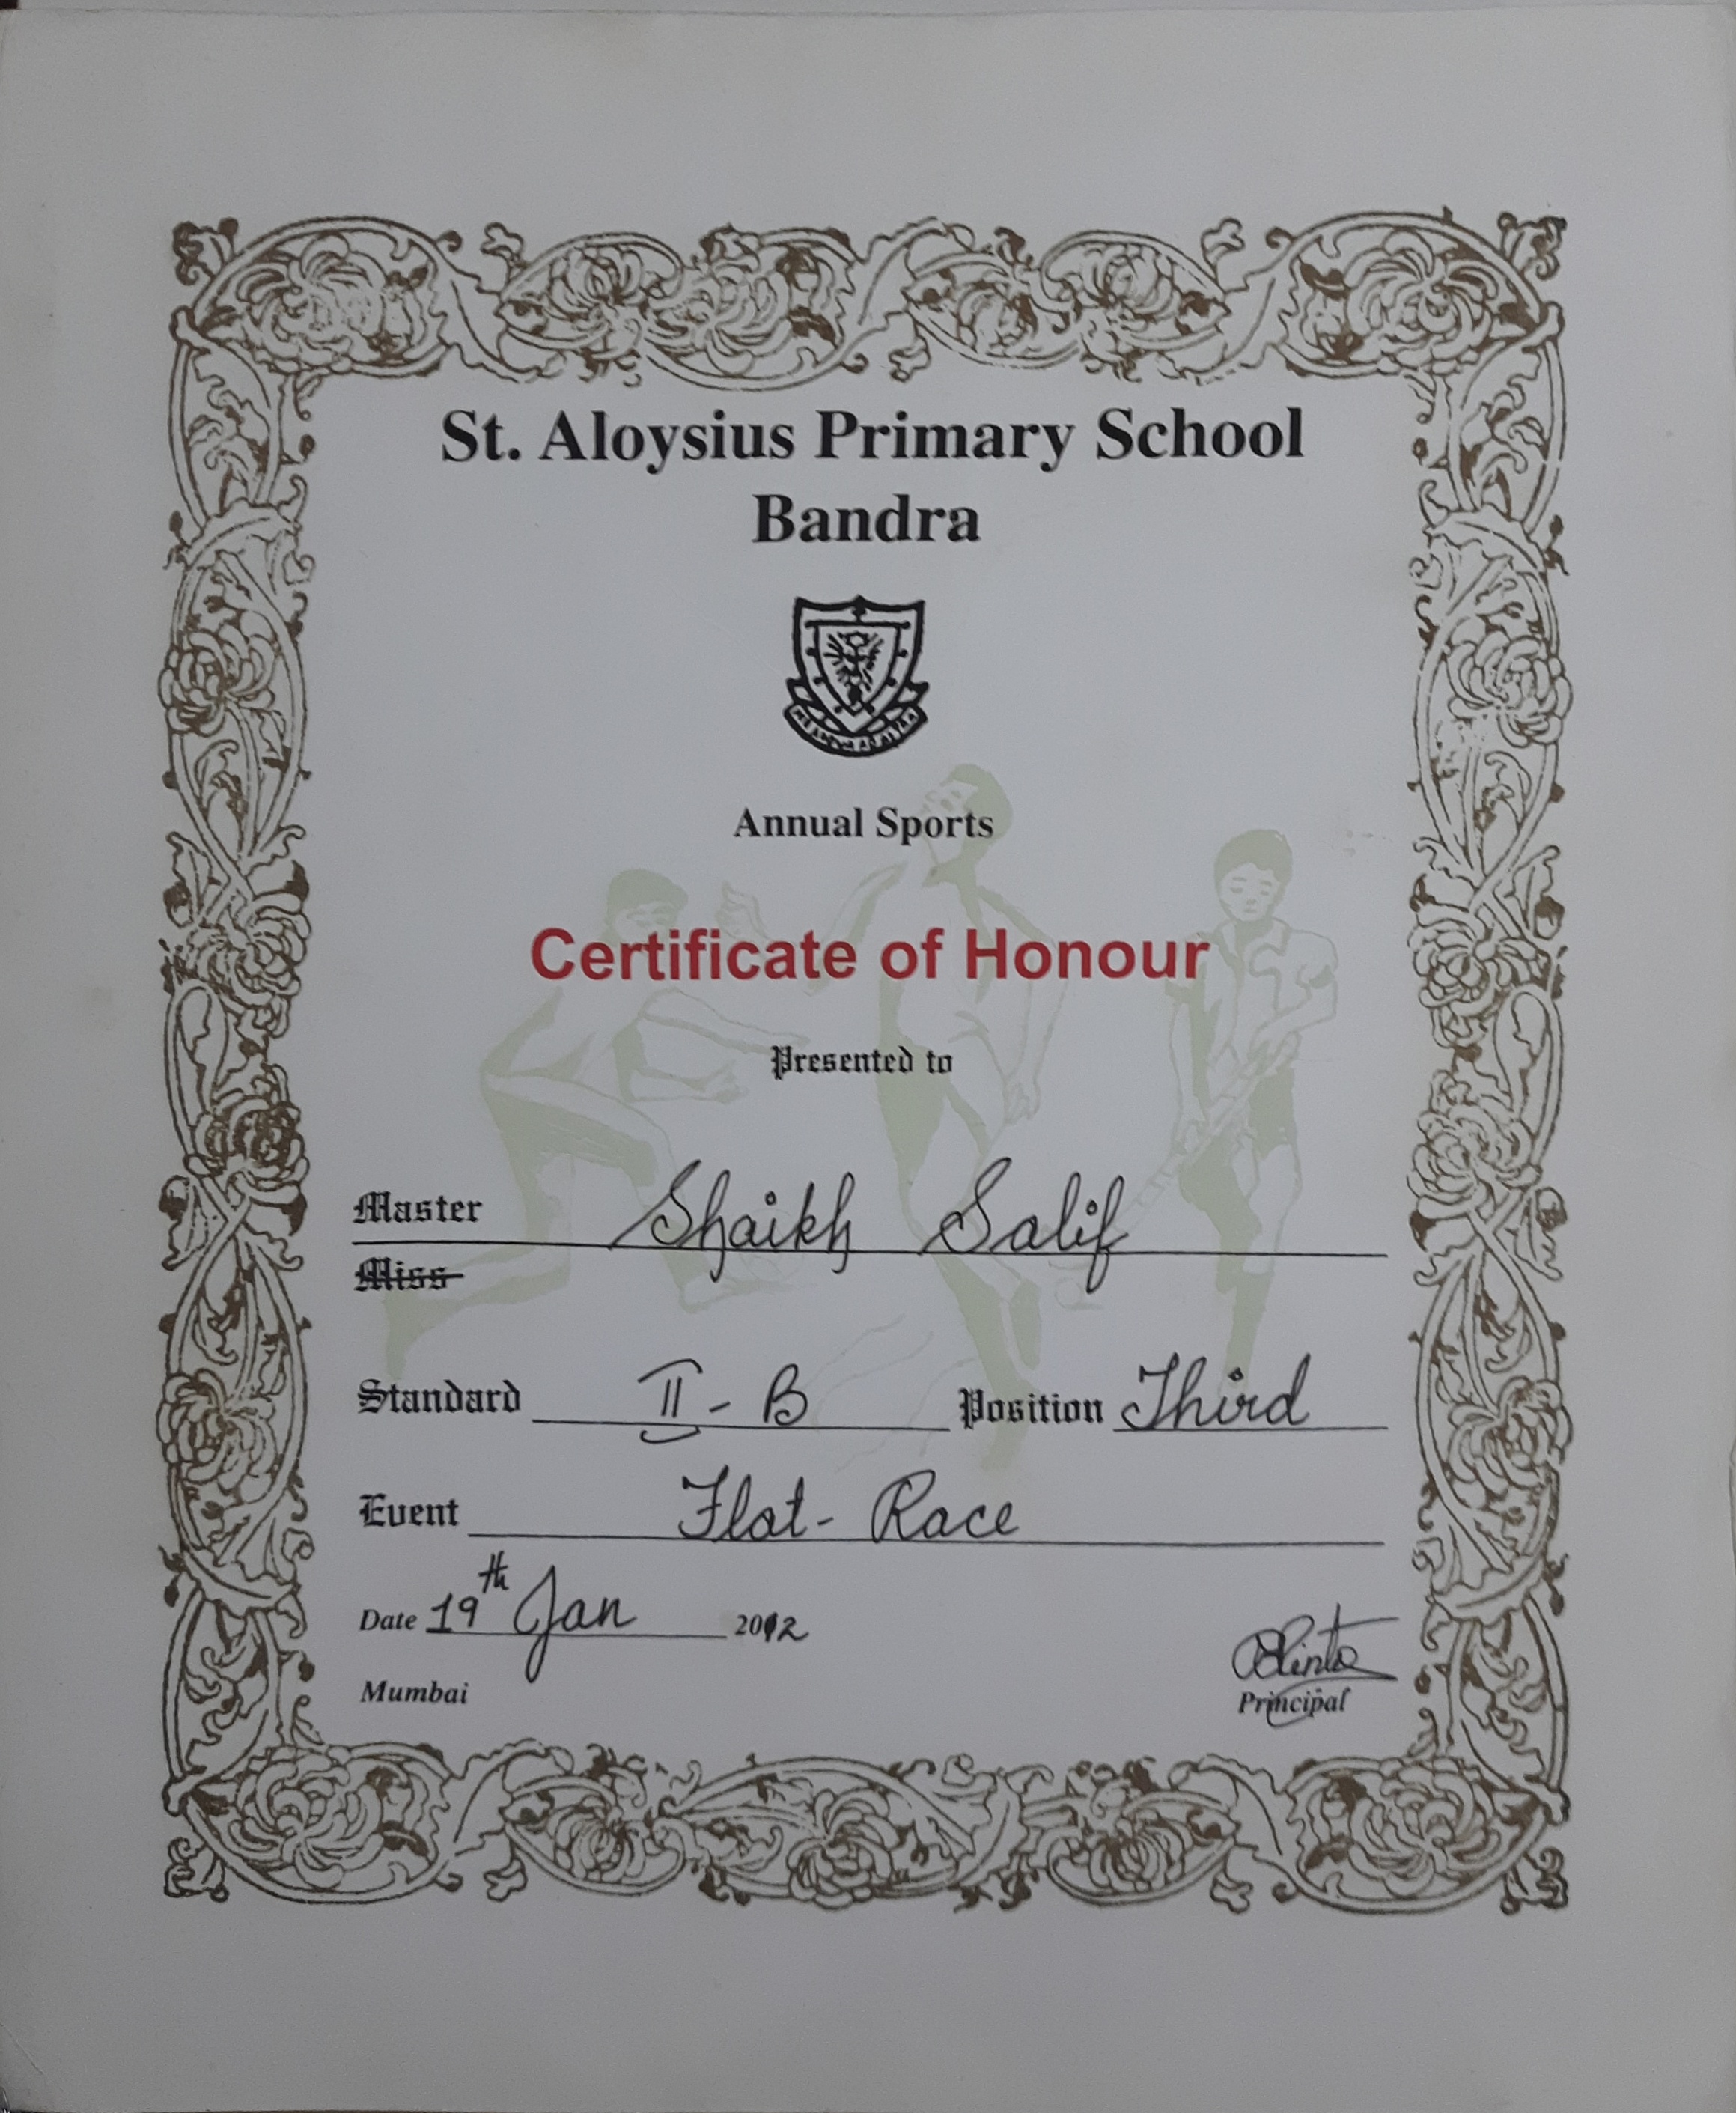 St. Aloysius Primary School
Bandra
Annual Sports
Certificate of Honour
Presented to
Master Shaikh Salif
Miss
Standard II - B Position Third
Event Flat - Race
Date 19th Jan 2012
Mumbai
Principal